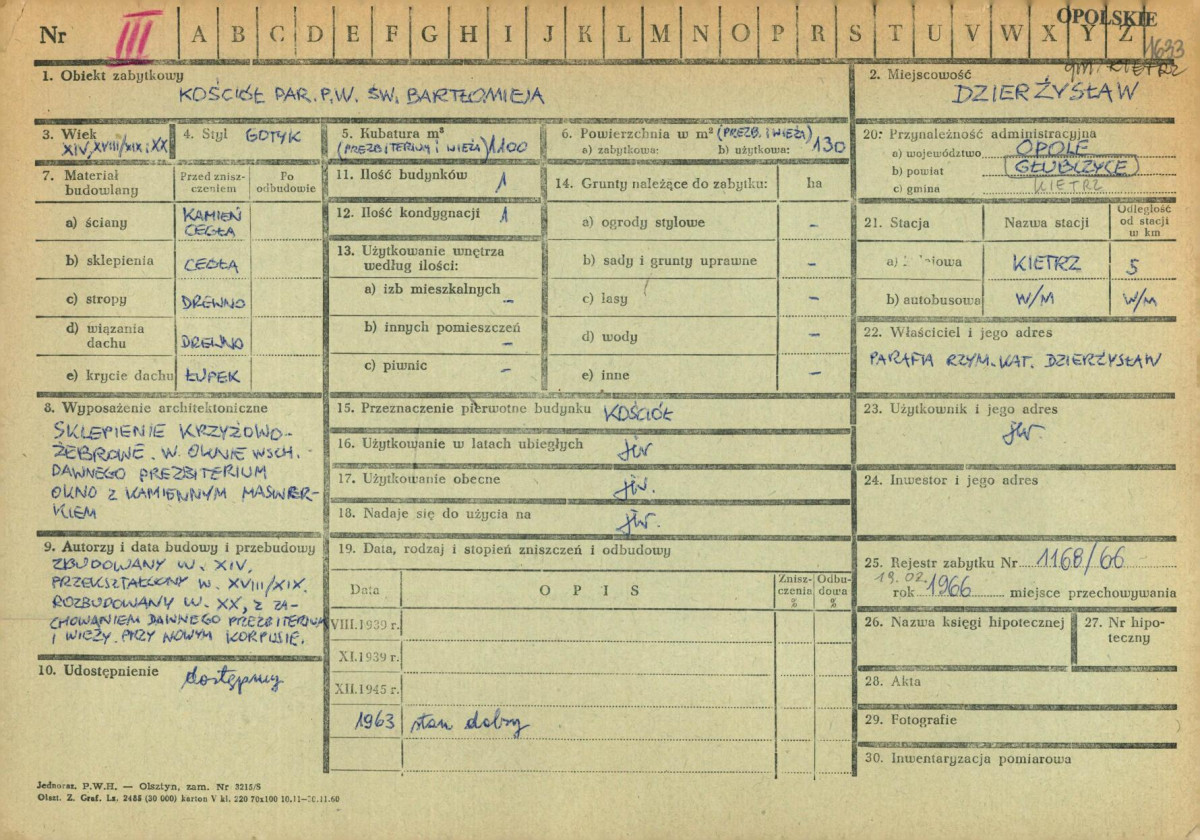 OPOLSKIE
Nr III A B C D E F G H I J K L M N O P R S T U V W X Y Z
11633
gm. KIETRZ
1. Obiekt zabytkowy
KOŚCIÓŁ PAR. P.W. ŚW. BARTŁOMIEJA
2. Miejscowość
DZIERŻYSŁAW
3. Wiek
XIV, XVIII/XIX i XX
4. Styl GOTYK
5. Kubatura m³
(PREZBITERIUM I WIEŻA) 1100
6. Powierzchnia w m² (PREZB. I WIEŻA)
a) zabytkowa: b) użytkowa: 130
7. Materiał budowlany
Przed zniszczeniem
Po odbudowie
a) ściany KAMIEŃ
CEGŁA
b) sklepienia CEGŁA
c) stropy DREWNO
d) wiązania dachu DREWNO
e) krycie dachu ŁUPEK
8. Wyposażenie architektoniczne
SKLEPIENIE KRZYŻOWO-
ŻEBROWE. W OKNIE WSCH.
DAWNEGO PREZBITERIUM
OKNO Z KAMIENNYM MASWER-
KIEM
9. Autorzy i data budowy i przebudowy
ZBUDOWANY W. XIV,
PRZEKSZTAŁCONY W. XVIII/XIX.
ROZBUDOWANY W. XX, Z ZA-
CHOWANIEM DAWNEGO PREZBITERIUM
I WIEŻY. PRZY NOWYM KORPUSIE.
10. Udostępnienie dostępny
11. Ilość budynków 1
12. Ilość kondygnacji 1
13. Użytkowanie wnętrza
według ilości:
a) izb mieszkalnych –
b) innych pomieszczeń –
c) piwnic –
14. Grunty należące do zabytku: ha
a) ogrody stylowe –
b) sady i grunty uprawne –
c) lasy –
d) wody –
e) inne –
15. Przeznaczenie pierwotne budynku KOŚCIÓŁ
16. Użytkowanie w latach ubiegłych jw
17. Użytkowanie obecne jw.
18. Nadaje się do użycia na jw.
19. Data, rodzaj i stopień zniszczeń i odbudowy
Data O P I S Zniszczenia % Odbudowa %
VIII.1939 r.
XI.1939 r.
XII.1945 r.
1963 stan dobry
20. Przynależność administracyjna
a) województwo OPOLE
b) powiat GŁUBCZYCE
c) gmina KIETRZ
21. Stacja Nazwa stacji Odległość od stacji w km
a) KIETRZ 5
b) autobusowa W/M W/M
22. Właściciel i jego adres
PARAFIA RZYM. KAT. DZIERŻYSŁAW
23. Użytkownik i jego adres
jw.
24. Inwestor i jego adres
25. Rejestr zabytku Nr 1168/66
19.02.
rok 1966 miejsce przechowywania
26. Nazwa księgi hipotecznej
27. Nr hipoteczny
28. Akta
29. Fotografie
30. Inwentaryzacja pomiarowa
Jednoraz. P.W.H. — Olsztyn, zam. Nr 3215/S
Olszt. Z. Graf. Lz. 2485 (30 000) karton V kl. 220 70x100 10.11— .11.60